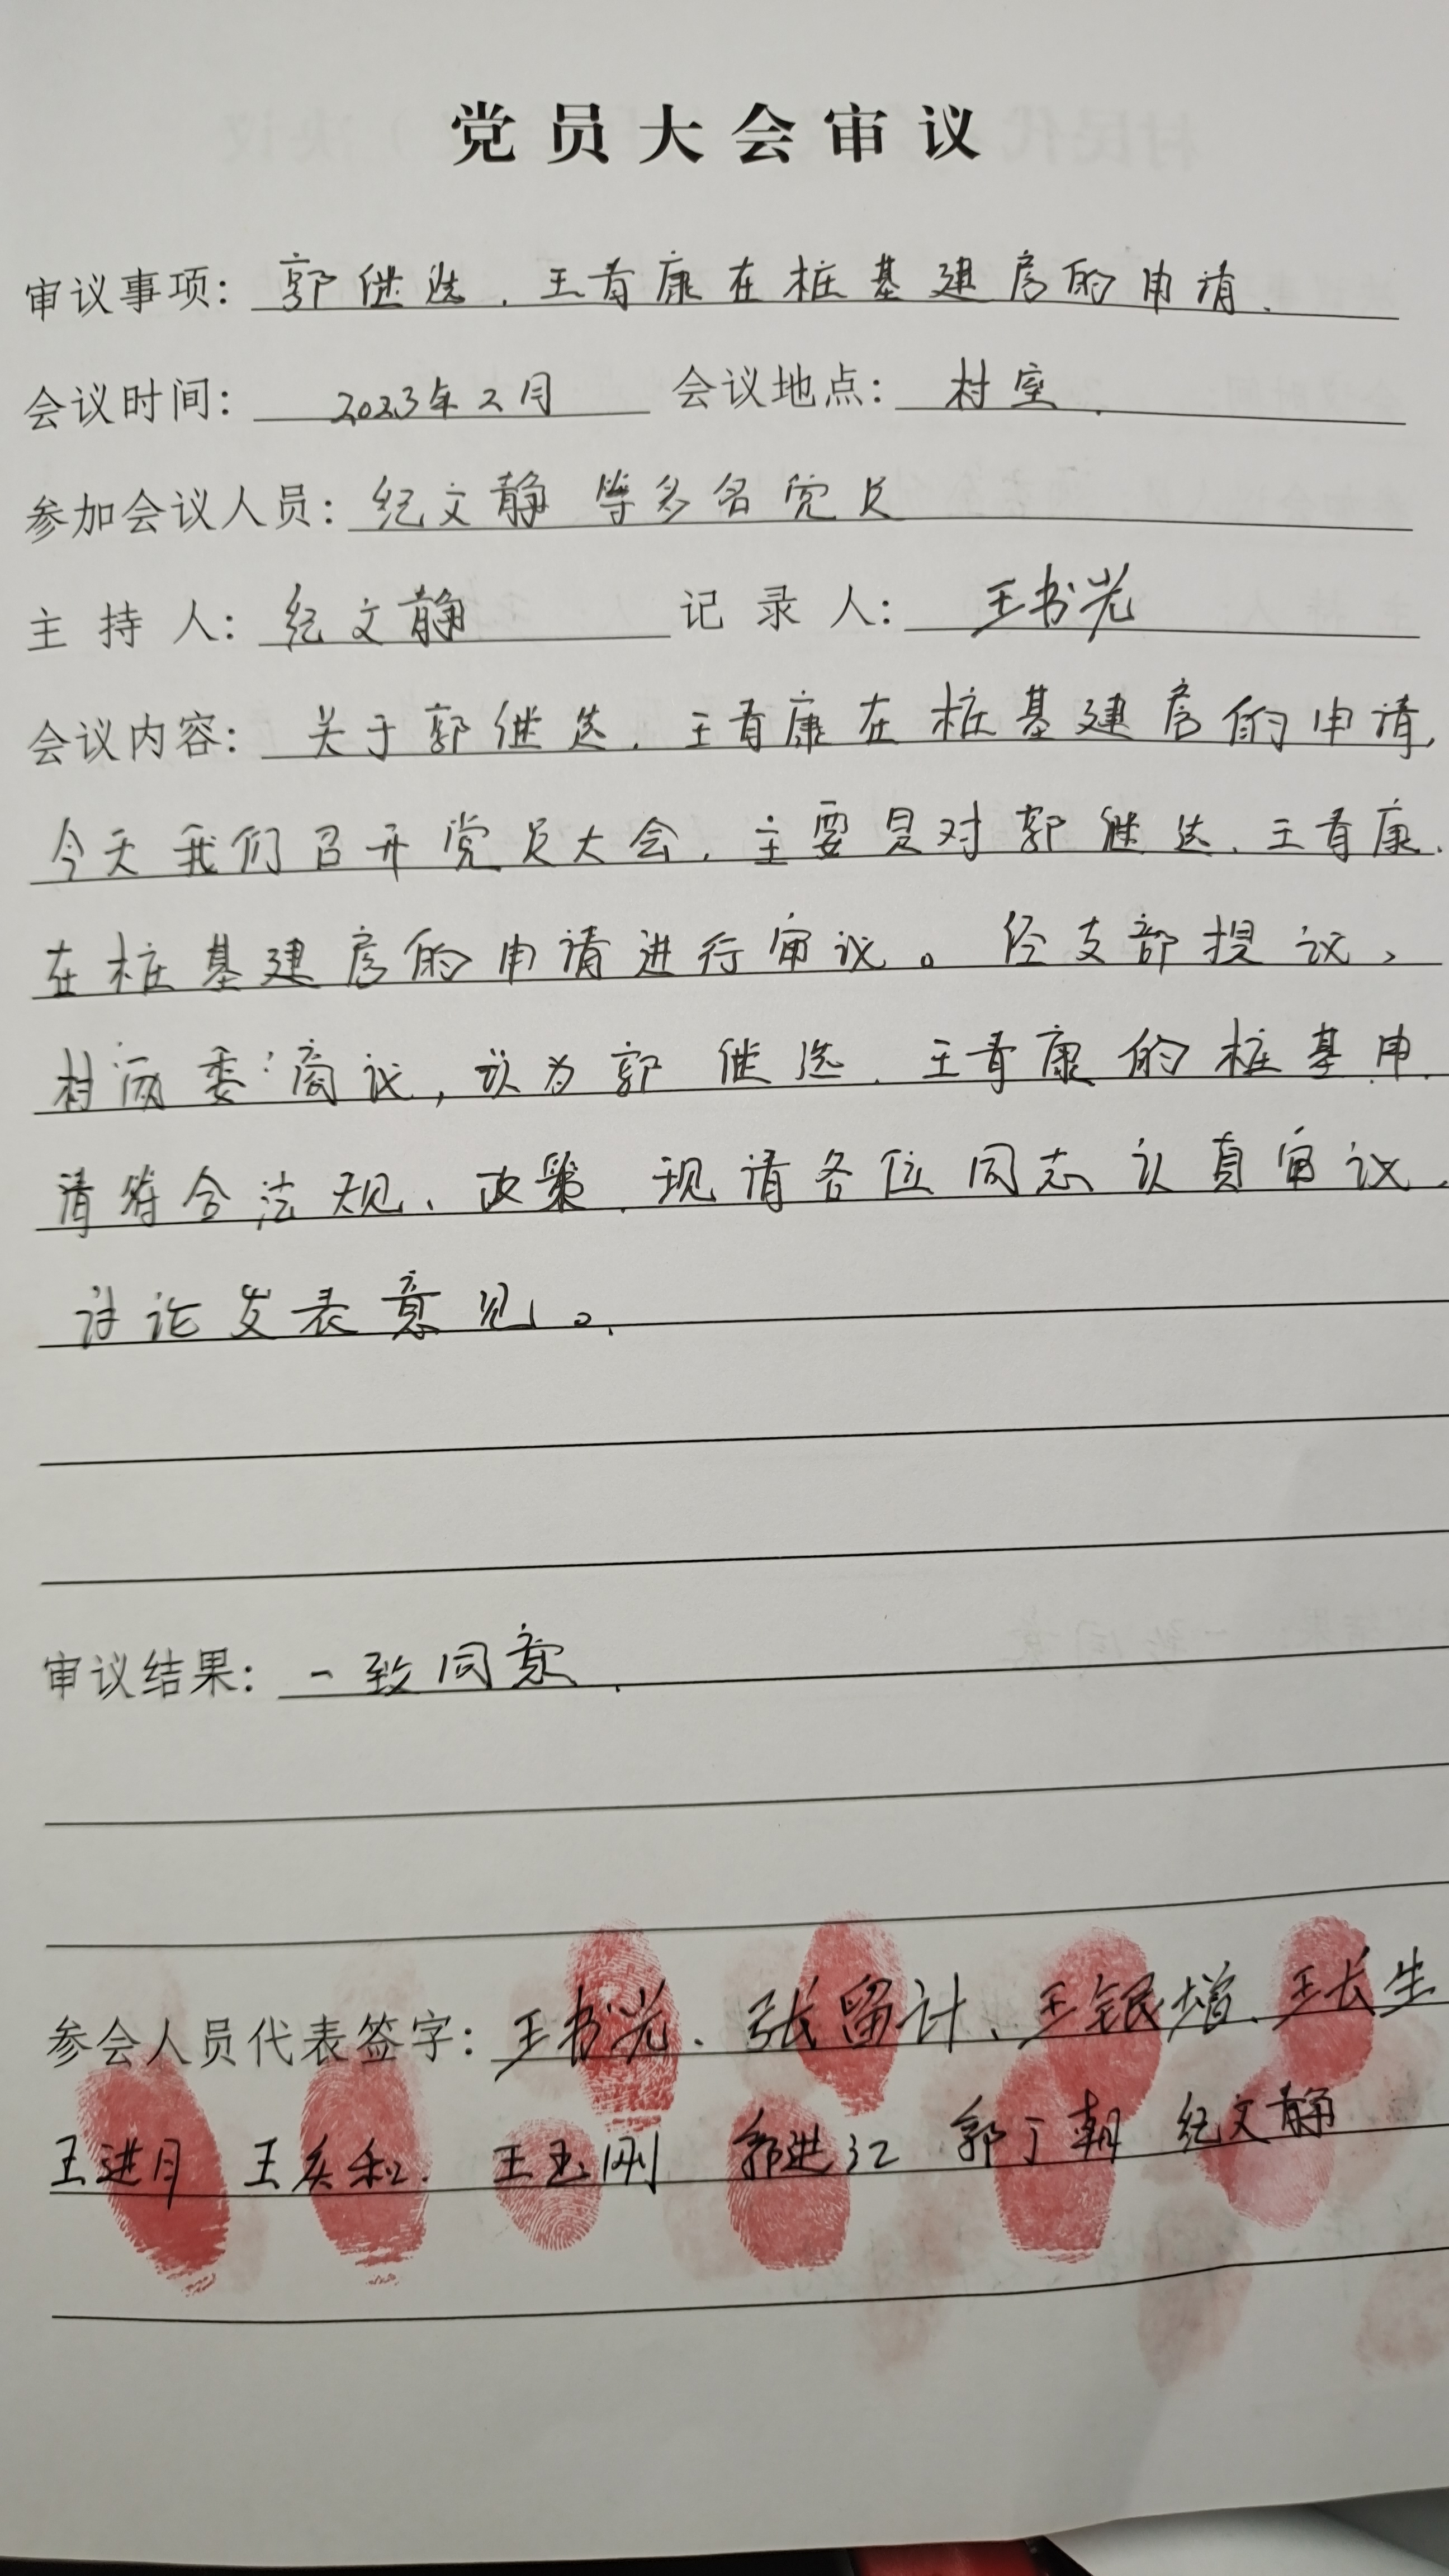 党员大会审议
审议事项：郭继选、王青康在桩基建房的申请、
会议时间：2023年2月 会议地点：村室、
参加会议人员：纪文静 等多名党员
主持人：纪文静 记录人：王书光
会议内容：关于郭继选、王青康在桩基建房的申请，
今天我们召开党员大会、主要是对郭继选、王青康、
在桩基建房的申请进行审议。经支部提议、
村两委商议，认为郭继选、王青康的桩基申
请符合法规、政策、现请各位同志认真审议、
讨论发表意见。
审议结果：一致同意、
参会人员代表签字：王书光、张留计、王银增、王长生
王进月 王矣和、王玉刚 郭进江 郭丁朝 纪文静